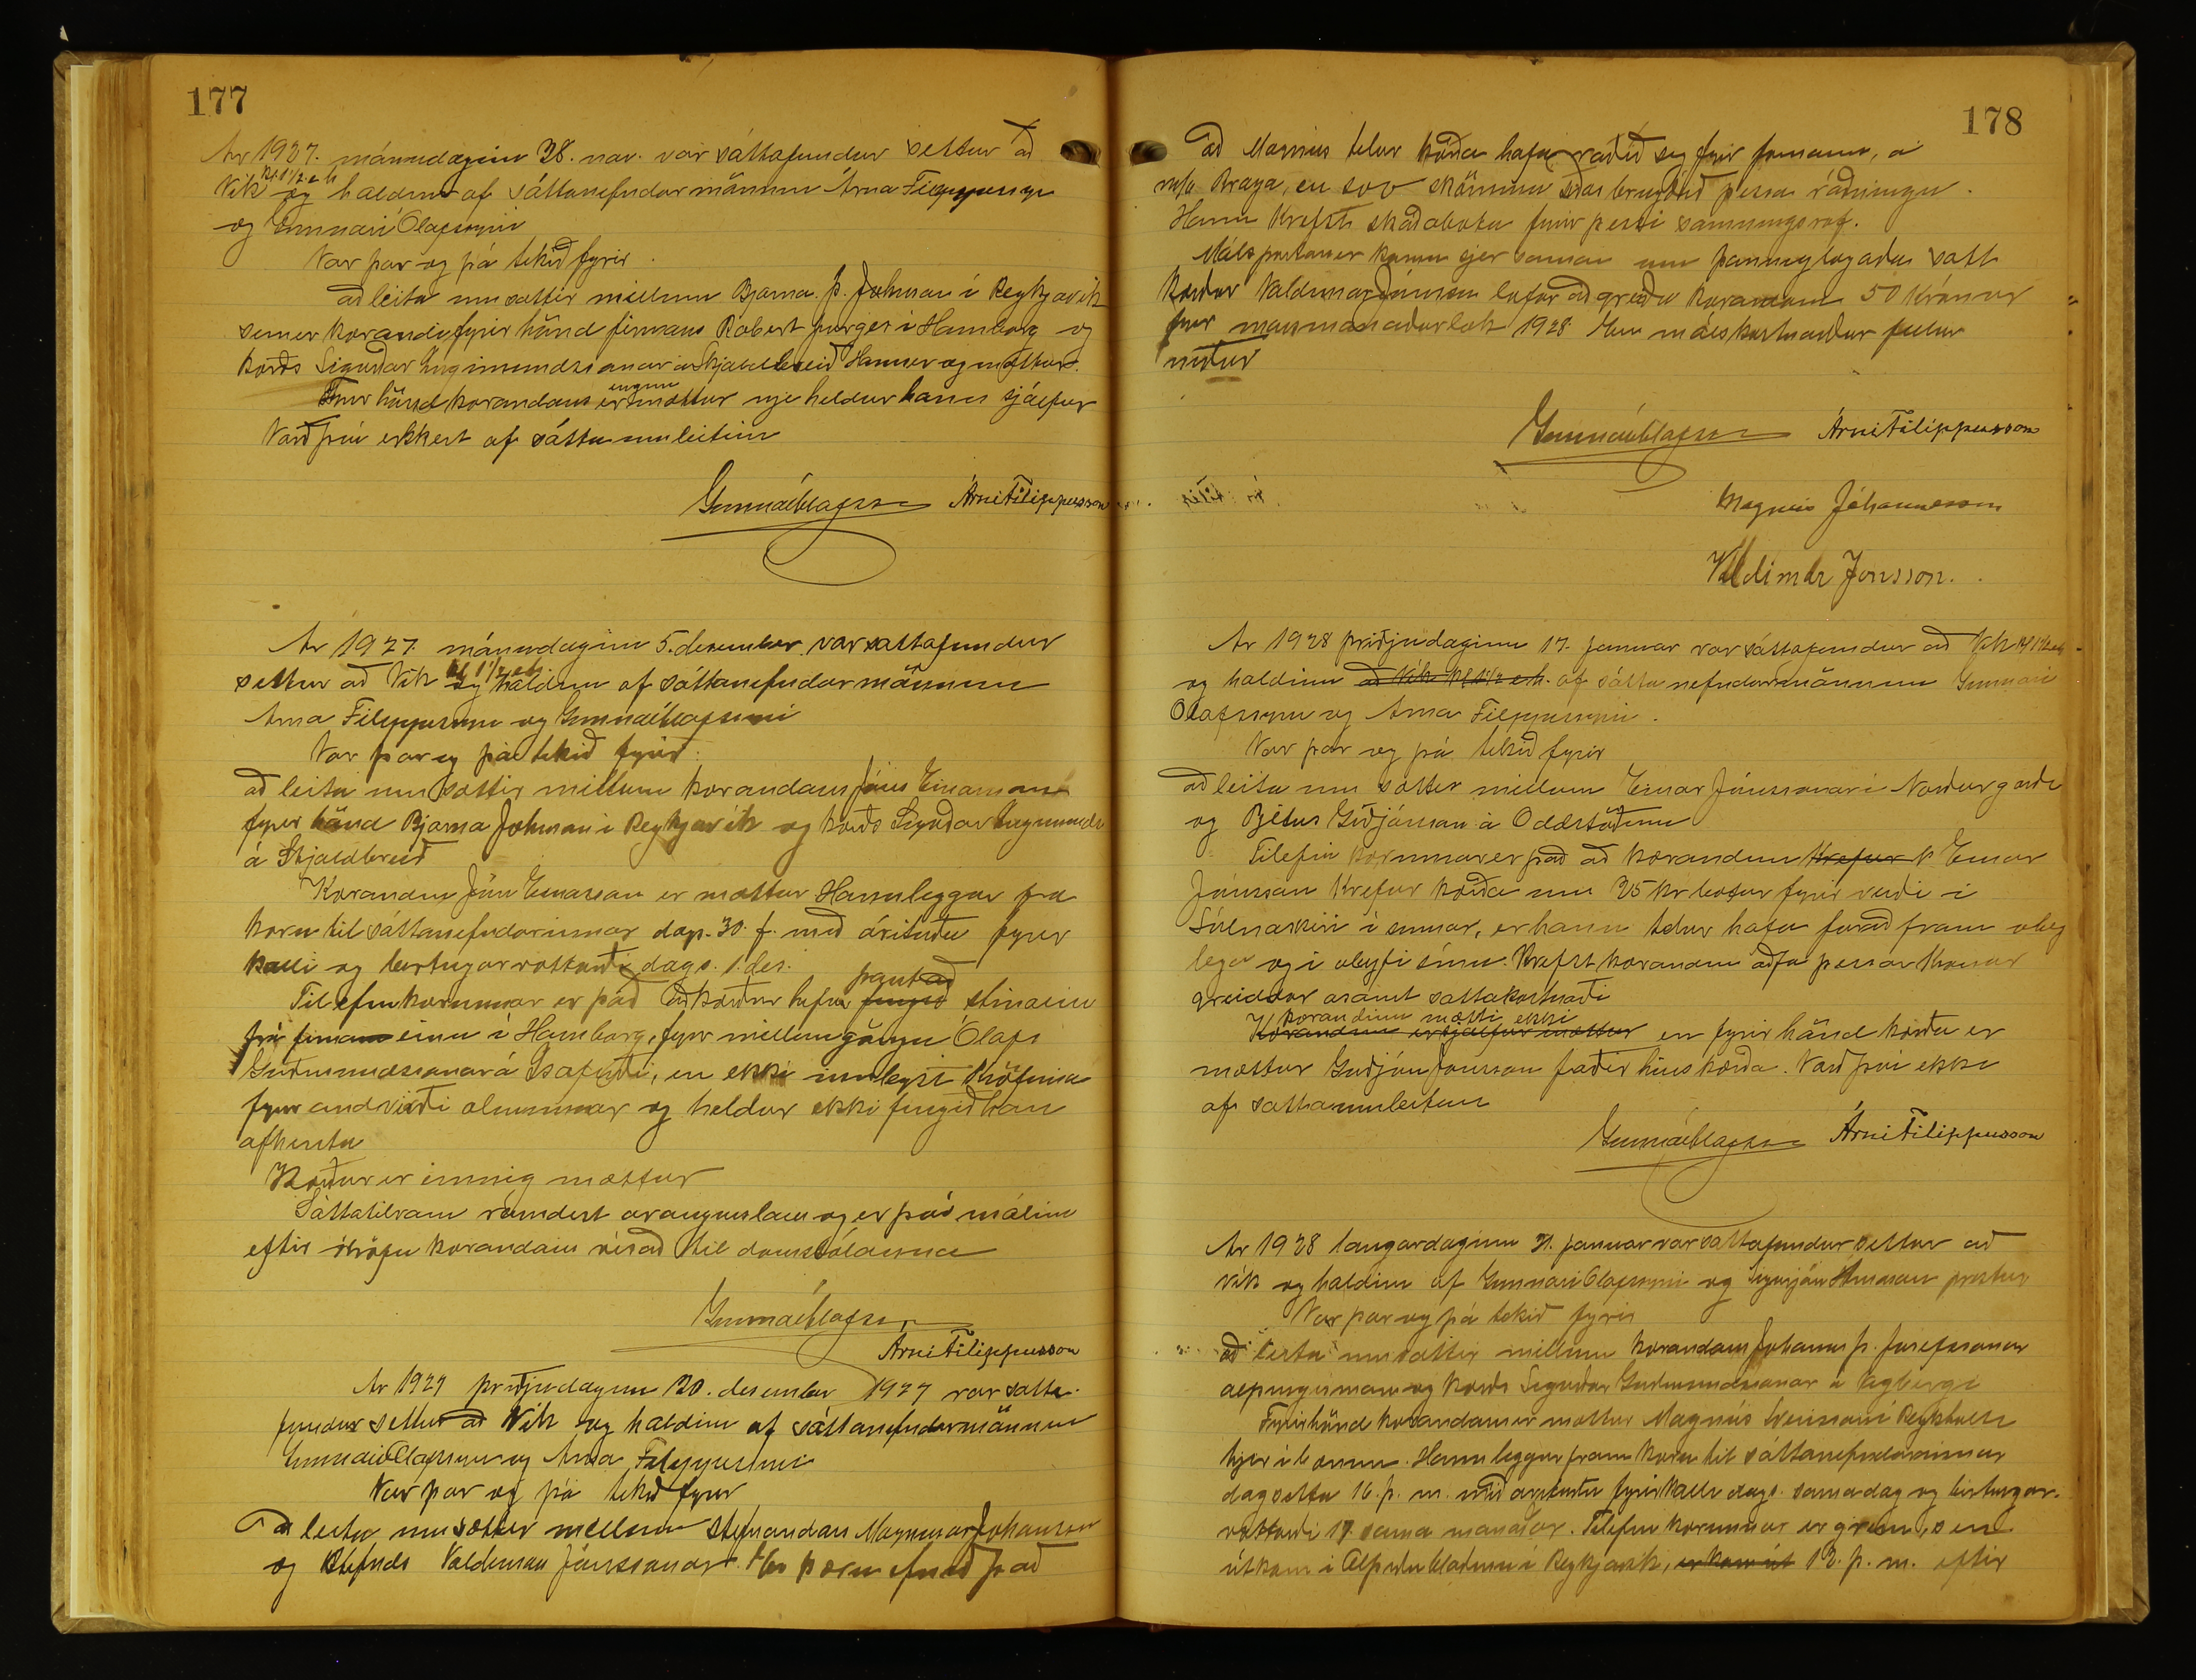 177
Ár 1927. mánudaginn 28. nóv. var sáttafundur settur að
Vík kl. 1 1/2 e h og haldinn af sáttanefndarmönnum Árna Filippussyni
og Gunnari Ólafssyni
Var þar og þá tekið fyrir.
að leita um sættir millum Bjarna Þ. Johnson í Reykjavik
sem er kærandi fyrir hönd firmans Robert í Hamborg og
kærðs Sigurðar Ingimundssonar á Skjaldbreið Hann er og mættur.
Fyrir hönd kærandans er enginn mættur nje heldur hann sjálfur
Varð því ekkert af sáttaumleitun
Gunnar Ólafsson Árni Filippusson
Ár 1927. mánudaginn 5. desember var sáttafundur
settur að Vík kl 1 1/2 eh og haldinn af sáttanefndarmönnum
Árna Filippussyni og Gunnari Ólafssyni
Var þar og þá tekið fyrir.
að leita um sættir millum kærandans Jóns Einarssonar
fyrir hönd Bjarna Johnson í Reykjavík og kærðs Sigurðar Ingimunds
á Skjaldbreið
Kærandinn Jón Einarsson er mættur Hann leggur fra
kæru til sáttanefndarinnar dags. 30. f. með árituðu fyrir
kalli og birtingarvottorði dags. 1. des.
Tilefni kærunnar er það að kærður hefur fengið pantað
frá firma einu í Hamborg, fyrir millumgöngu Ólafs
Guðmundssonar á Ísafirði, en ekki innleyst kröfuna
fyrir andvirði og heldur ekki fengið hana
afhenta
Kærður er einnig mættur
Sáttatilraun reyndist árangurslaus og er því málinu
eftir kröfu kærandans vísað til dómstólanna
Gunnar Ólafsson
Árni Filippusson
Ár 1927 þriðjudaginn 20. desember 1927 var sátta-
fundur settur að Vík og haldinn af sáttanefndarmönnum
Gunnari Ólafssyni og Árna Filippussyni
Var þar og þá tekið fyrir
Að leita um sættir millum stefnandans Magnúsar Johansson
og stefnds Valdimars Jónssonar. En kæruefnið það
178
að Magnús telur kærða hafa ráðið sig fyrir formann, á
m/b Braga, en svo skömmu síðar brugðið þessa ráðningu.
Hann krefst skaðabóta fyrir þessi samningsrof.
Málspartarnir komu sjer saman um þannig lagaða sátt
Kærður Valdimar Jónsson lofar að greiða kærandanum 50 krónur
fyrir marsmánaðarlok 1928. En málskostnaður fellur
niður
Gunnar Ólafsson Árni Filippusson
Magnús Jóhannesson
Valdimar Jónsson.
Ár 1928 þriðjudaginn 17. januar var sáttafundur að Vík kl 1 1/2 eh
og haldinn að Vík kl 1 1/2 e.h. af sáttanefndarmönnum Gunnari
Ólafssyni og Árna Filippussyni.
Var þar og þá tekið fyrir
að leita um sættir millum Einar Jónssonar í Norðurgarði
og Pjetur Guðjónsson á Oddstöðum
Tilefni kærunnar er það að kærandinn krefur Einar
Jónsson krefur kærða um 25 kr bætur fyrir veiði í
Súlnaskeri í sumar, er hann telur hafa farið fram ólög
lega og í óleyfi sínu. Krefst kærandinn að fá þessar krónur
greiddar ásamt sáttakostnaði
kærandinn mætti ekki
Kærandinn er sjálfur mættur en fyrir hönd kærða er
mættur Guðjón Jónsson faðir hins kærða. Varð því ekki
af sáttaumleitun
Gunnar Ólafsson Árni Filippusson
Ár 1928 laugardaginn 21. januar var sáttafundur settur að
Vík og haldinn af Gunnari Ólafssyni og Sigurjón Árnason prestur
Var þar og þá tekið fyrir
að leita um sættir millum kærandans Johanns Þ. Josefssonar
alþingismanns og kærðs Sigurðar Guðmundssonar á Lögbergi
Fyrir hönd kærandans er mættur Magnús í Reykholti
hjer í bænum. Hann leggur fram kæru til sáttanefndarinnar
dagsetta 16. þ. m. með árituðu fyrirkalli dags. sama dag og birtingar-
vottorði 17. sama mánaðar. Tilefni kærunnar er grein, sem
út kom í Alþýðublaðinu í Reykjavík, er kom út 12. þ. m. eftir